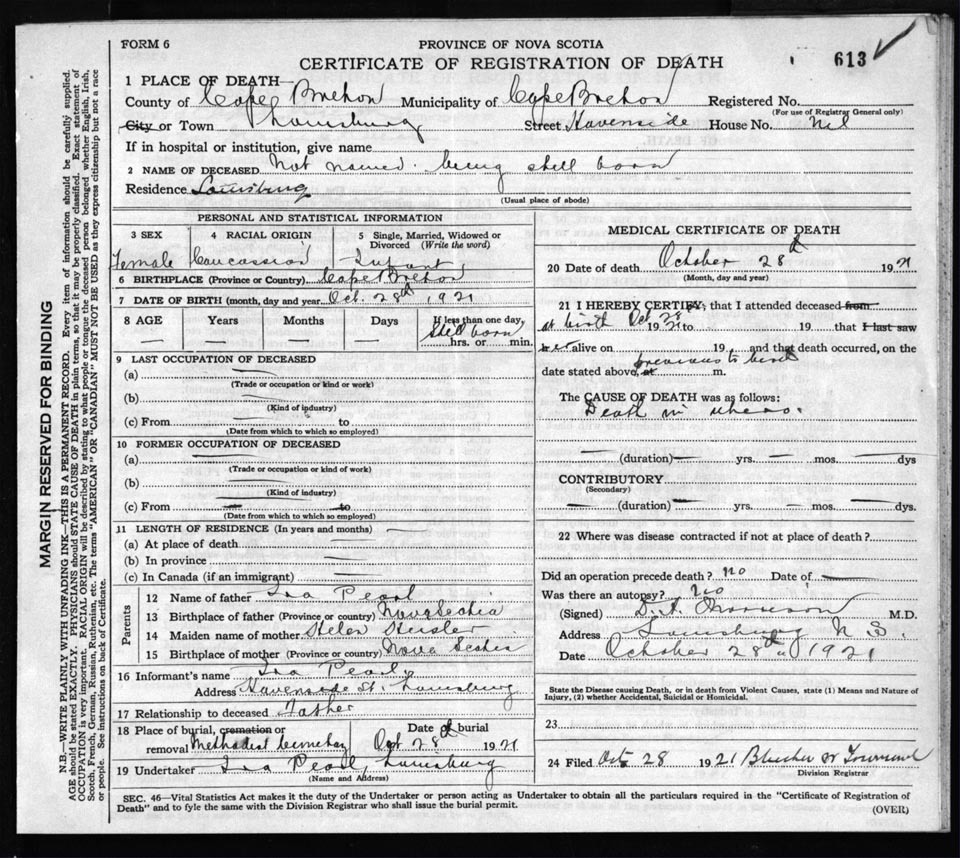 FORM 6
PROVINCE OF NOVA SCOTIA
CERTIFICATE OF REGISTRATION OF DEATH
613
1 PLACE OF DEATH
County of Cape Breton Municipality of Cape Breton Registered No.
(For use of Registrar General only)
City or Town Louisburg Street Havenside House No. Nil
If in hospital or institution, give name
2 NAME OF DECEASED Not named. being still born
Residence Louisburg
(Usual place of abode)
PERSONAL AND STATISTICAL INFORMATION
3 SEX 4 RACIAL ORIGIN 5 Single, Married, Widowed or Divorced (Write the word)
Female Caucassian Infant
6 BIRTHPLACE (Province or Country) Cape Breton
7 DATE OF BIRTH (month, day and year) Oct. 28th, 1921
8 AGE Years Months Days If less than one day,
— — — Still born hrs. or min.
9 LAST OCCUPATION OF DECEASED
(a)
(Trade or occupation or kind or work)
(b)
(Kind of industry)
(c) From to
(Date from which to which so employed)
10 FORMER OCCUPATION OF DECEASED
(a)
(Trade or occupation or kind of work)
(b)
(Kind of industry)
(c) From to
(Date from which to which so employed)
11 LENGTH OF RESIDENCE (In years and months)
(a) At place of death
(b) In province
(c) In Canada (if an immigrant)
Parents
12 Name of father Ira Pearl
13 Birthplace of father (Province or country) Nova Scotia
14 Maiden name of mother Helen
15 Birthplace of mother (Province or country) Nova Scotia
16 Informant's name Ira Pearl
Address Havenside St. Louisburg
17 Relationship to deceased Father
18 Place of burial, cremation or removal Methodist Cemetery Date of burial Oct 28 1921
19 Undertaker Ira Pearl, Louisburg
(Name and Address)
MEDICAL CERTIFICATE OF DEATH
20 Date of death October 28th 1921
(Month, day and year)
21 I HEREBY CERTIFY, that I attended deceased from
at birth Oct 28 1921 to 19 that I last saw
h er alive on 19, and that death occurred, on the
date stated above, at previous to birth m.
The CAUSE OF DEATH was as follows:
Death in utero.
(duration) yrs. mos. dys
CONTRIBUTORY
(Secondary)
(duration) yrs. mos. dys.
22 Where was disease contracted if not at place of death?
Did an operation precede death? no Date of
Was there an autopsy? No
(Signed) Morrison M.D.
Address Louisburg N.S.
Date October 28th 1921
State the Disease causing Death, or in death from Violent Causes, state (1) Means and Nature of
Injury, (2) whether Accidental, Suicidal or Homicidal.
23
24 Filed Oct 28 1921
Division Registrar
SEC. 46—Vital Statistics Act makes it the duty of the Undertaker or person acting as Undertaker to obtain all the particulars required in the "Certificate of Registration of
Death" and to fyle the same with the Division Registrar who shall issue the burial permit.
(OVER)
MARGIN RESERVED FOR BINDING
N.B.—WRITE PLAINLY WITH UNFADING INK—THIS IS A PERMANENT RECORD. Every item of information should be carefully supplied.
AGE should be stated EXACTLY. PHYSICIANS should STATE CAUSE OF DEATH in plain terms, so that it may be properly classified. Exact statement of
OCCUPATION is very important. RACIAL ORIGIN will be described by stating to what people or tongue the deceased person belonged whether English, Irish,
Scotch, French, German, Russian, Ruthenian, etc. The terms "AMERICAN" OR "CANADIAN" MUST NOT BE USED as they express citizenship but not a race
or people. See instructions on back of Certificate.